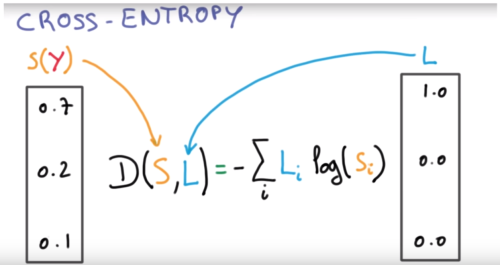 CROSS-ENTROPY
S(Y)
L
0.7
0.2
0.1
D(S,L)=-∑ᵢ Lᵢ log(Sᵢ)
1.0
0.0
0.0